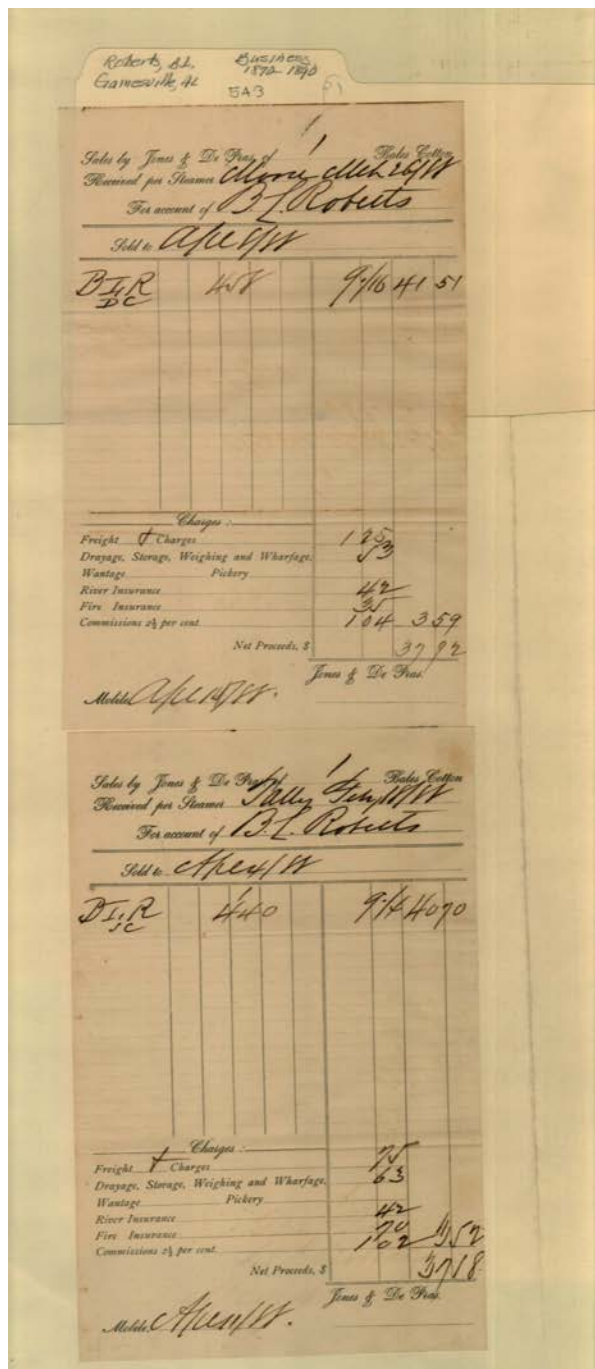 Roberts, B.L. Business
Gainesville, AL 1870-1890
5A3
Sales by Jones & De Pras of 1 Bales Cotton
Received per Steamer
For account of B L Roberts
Sold to
B L R 458 9 7/16 41 51
DC
Charges:
Freight & Charges 1 25
Drayage, Storage, Weighing and Wharfage, 53
Wantage Pickery
River Insurance 42
Fire Insurance 35
Commissions 2½ per cent. 1 04 3 59
Net Proceeds, $ 37 92
Jones & De Pras.
Mobile
Sales by Jones & De Pras of 1 Bales Cotton
Received per Steamer Tally
For account of B. L. Roberts
Sold to
B L R 440 9 1/4 40 70
Charges:
Freight & Charges 75
Drayage, Storage, Weighing and Wharfage, 63
Wantage Pickery
River Insurance 42
Fire Insurance 70
Commissions 2½ per cent. 1 02 3 52
Net Proceeds, $ 37 18
Jones & De Pras.
Mobile